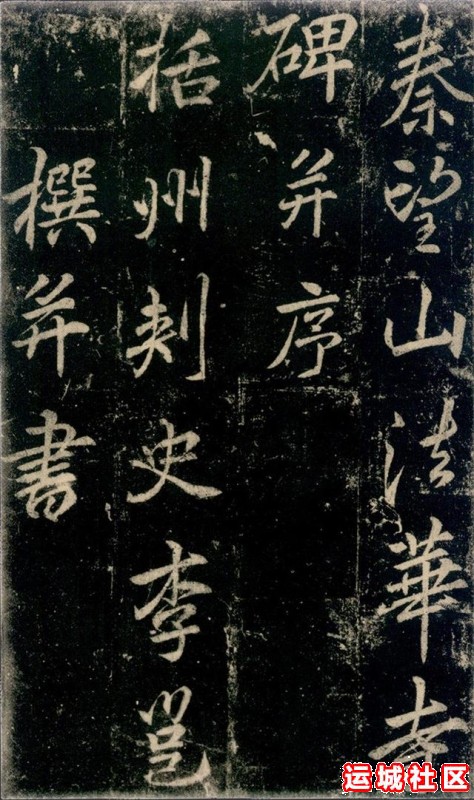 秦望山法華寺
碑并序
括州刺史李邕
撰并書
运城社区